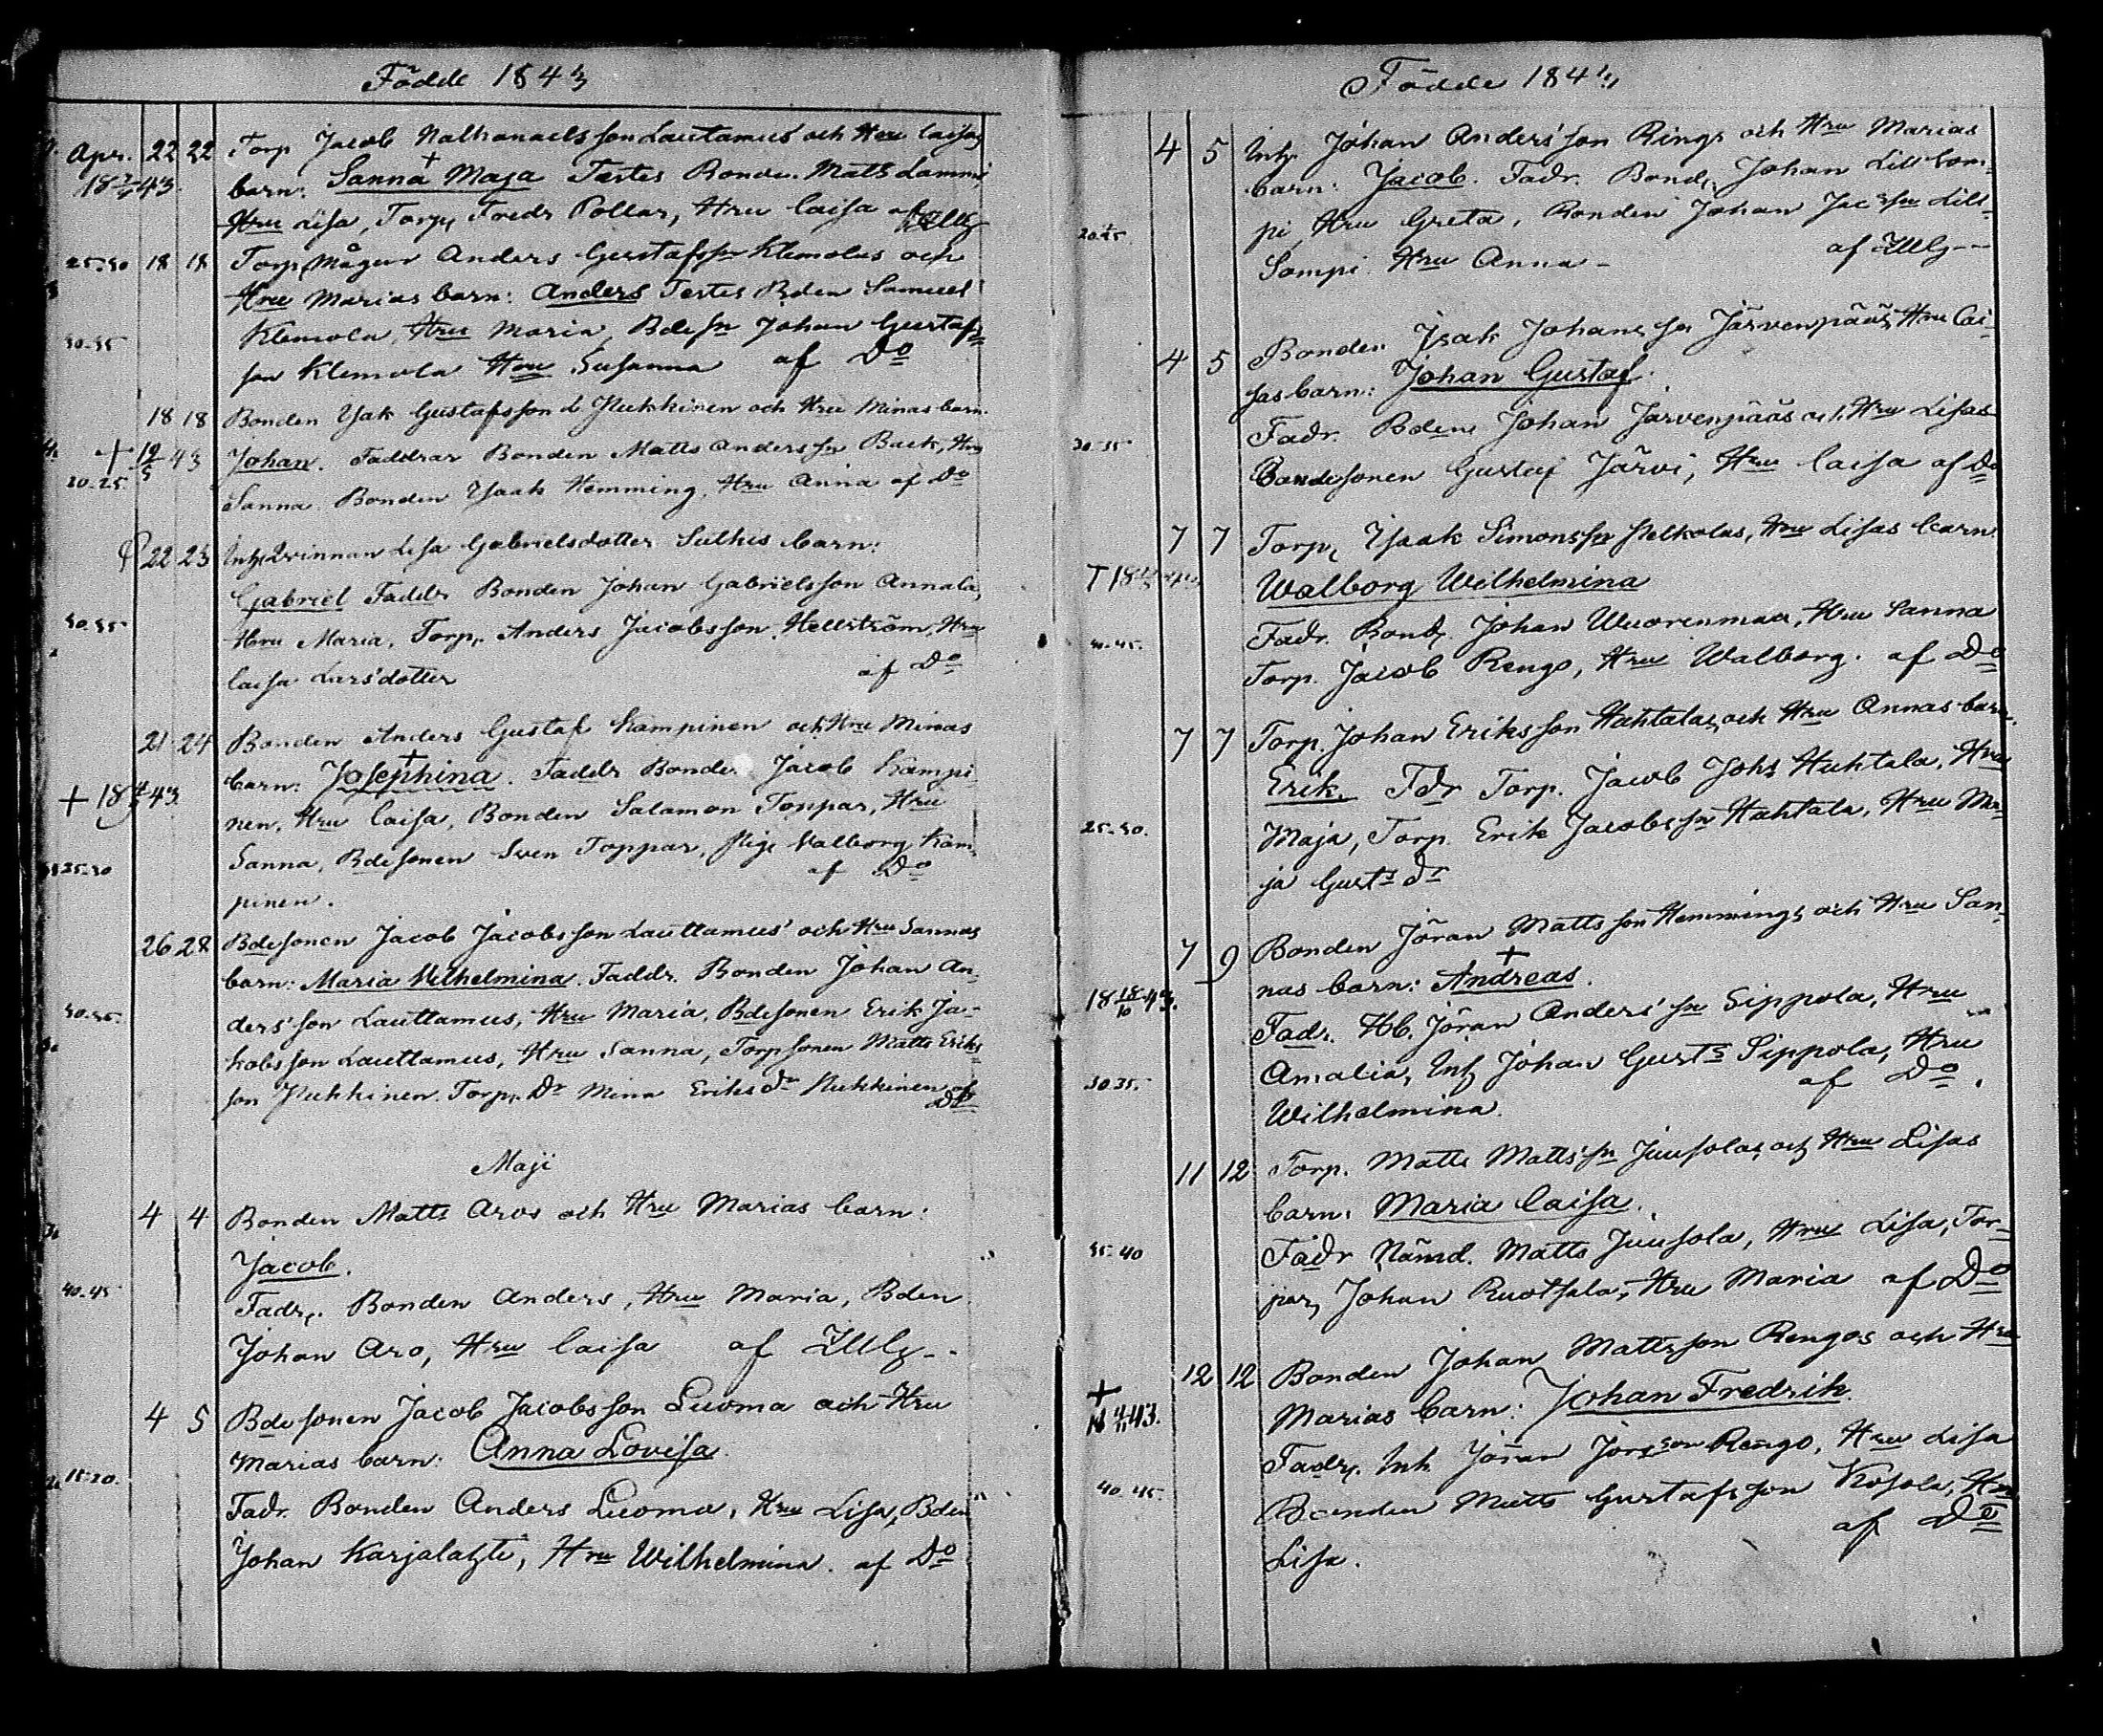 Födde 1843
Apr. 22 22 Torp Jacob Nathanaelsson Lautamus och Hru Caisas
barn: Sanna Maja Testes Bonden Matts Lammi
Hru Lisa, Torp, Fredr Pollar, Hru Caisa af
25-30 18 18 Torp, Mågen Anders Gustafsson Klemolas och
Hru Marias barn: Anders Testes Bden Samuel
30-35 Klemola, Hru Maria, Bdesn Johan Gustafs
son Klemola Hru Susanna af Do
18 18 Bonden Isak Gustafsson Hukkinen och Hru Minas barn.
+ 19/5 43 Johan. Faddrar Bonden Matts Andersson Back, Hru
20-25 Sanna. Bonden Isaak Hemming, Hru Anna af Do
22 23 Inh, Qvinnan Lisa Gabrielsdotter Sulkis barn:
Gabriel Faddr Bonden Johan Gabrielsson Annala,
30-35 Hru Maria, Torp, Anders Jacobsson Hellström, Hru
Caisa Larsdotter af Do
21 24 Bonden Anders Gustaf Kampinen och Hru Minas
barn: Josephina. Faddr Bonden Jacob Kampi
+ 18 43 nen, Hru Caisa, Bonden Salamon Toppar, Hru
Sanna, Bdesonen Sven Toppar, Pige Valborg Kam
25-30 af Do
pinen.
26 28 Bdesonen Jacob Jacobsson Lauttamus' och Hru Sannas
barn: Maria Wilhelmina. Faddr. Bonden Johan An-
30-35. ders'son Lauttamus, Hru Maria, Bdesonen Erik Ja-
kobsson Lauttamus, Hru Sanna, Torpsonen Matts Eriks
son Hukkinen. Torp, Dr Mina Eriksdr Hukkinen af
Do
Maji
4 4 Bonden Matts Aros och Hru Marias barn:
Jacob.
40-45 Fadr,. Bonden Anders, Hru Maria, Bden
Johan Aro, Hru Caisa af Illy--
4 5 Bdesonen Jacob Jacobsson Luoma och Hru
Marias barn: Anna Lovisa
15-20. Fadr. Bonden Anders Luoma, Hru Lisa, Bden
Johan Karjalahti, Hru Wilhelmina. af Do
Födde 184
4 5 Inh, Johan Anders'son Rings och Hru Marias
barn: Jacob. Fadr. Bond, Johan Lill Som-
pi, Hru Greta, Bonden Johan Jacssn Lill-
Sompi. Hru Anna- af Illy--
4 5 Bonden Isak Johansson Järvenpääs, Hru Cai-
sas barn: Johan Gustaf.
30-35 Fadr. Bdene Johan Järvenpääs och Hru Lisas
Bondesonen Gustaf Järvi, Hru Caisa af Do
7 7 Torp, Isaak Simonssn Pelkolas, Hru Lisas barn.
Walborg Wilhelmina
40-45. Fadr. Bond, Johan Wuorenmaa, Hru Sanna
Torp. Jacob Rengo, Hru Walborg. af Do
7 7 Torp. Johan Eriksson Huhtalas och Hru Annas barn.
Erik. Fdr Torp. Jacob Johs Huhtala, Hru
25-30. Maja, Torp. Erik Jacobssn Huhtala, Hru Ma
ja Gusts dr
7 9 Bonden Jöran Mattsson Hemmings och Hru San-
nas barn: Andreas.
18 18/10 43. Fadr. Hb. Jöran Anders'sn Sippola, Hru
30-35. Amalia, Inh, Johan Gusts Sippola, Hru
af Do.
Wilhelmina.
11 12 Torp. Matts Matts'sn Juusolas och Hru Lisas
barn: Maria Caisa.
35-40 Fadr Nämd. Matts Juusola, Hru Lisa, Tor-
par, Johan Ruotsala, Hru Maria af Do
12 12 Bonden Johan Mattsson Rengos och Hru
+ 43. Marias barn: Johan Fredrik.
Fadr,. Inh Jöran Jörsson Rengo, Hru Lisa
40-45. Bonden Matts Gustafsson Kosola, Hru
af Do
Lisa.